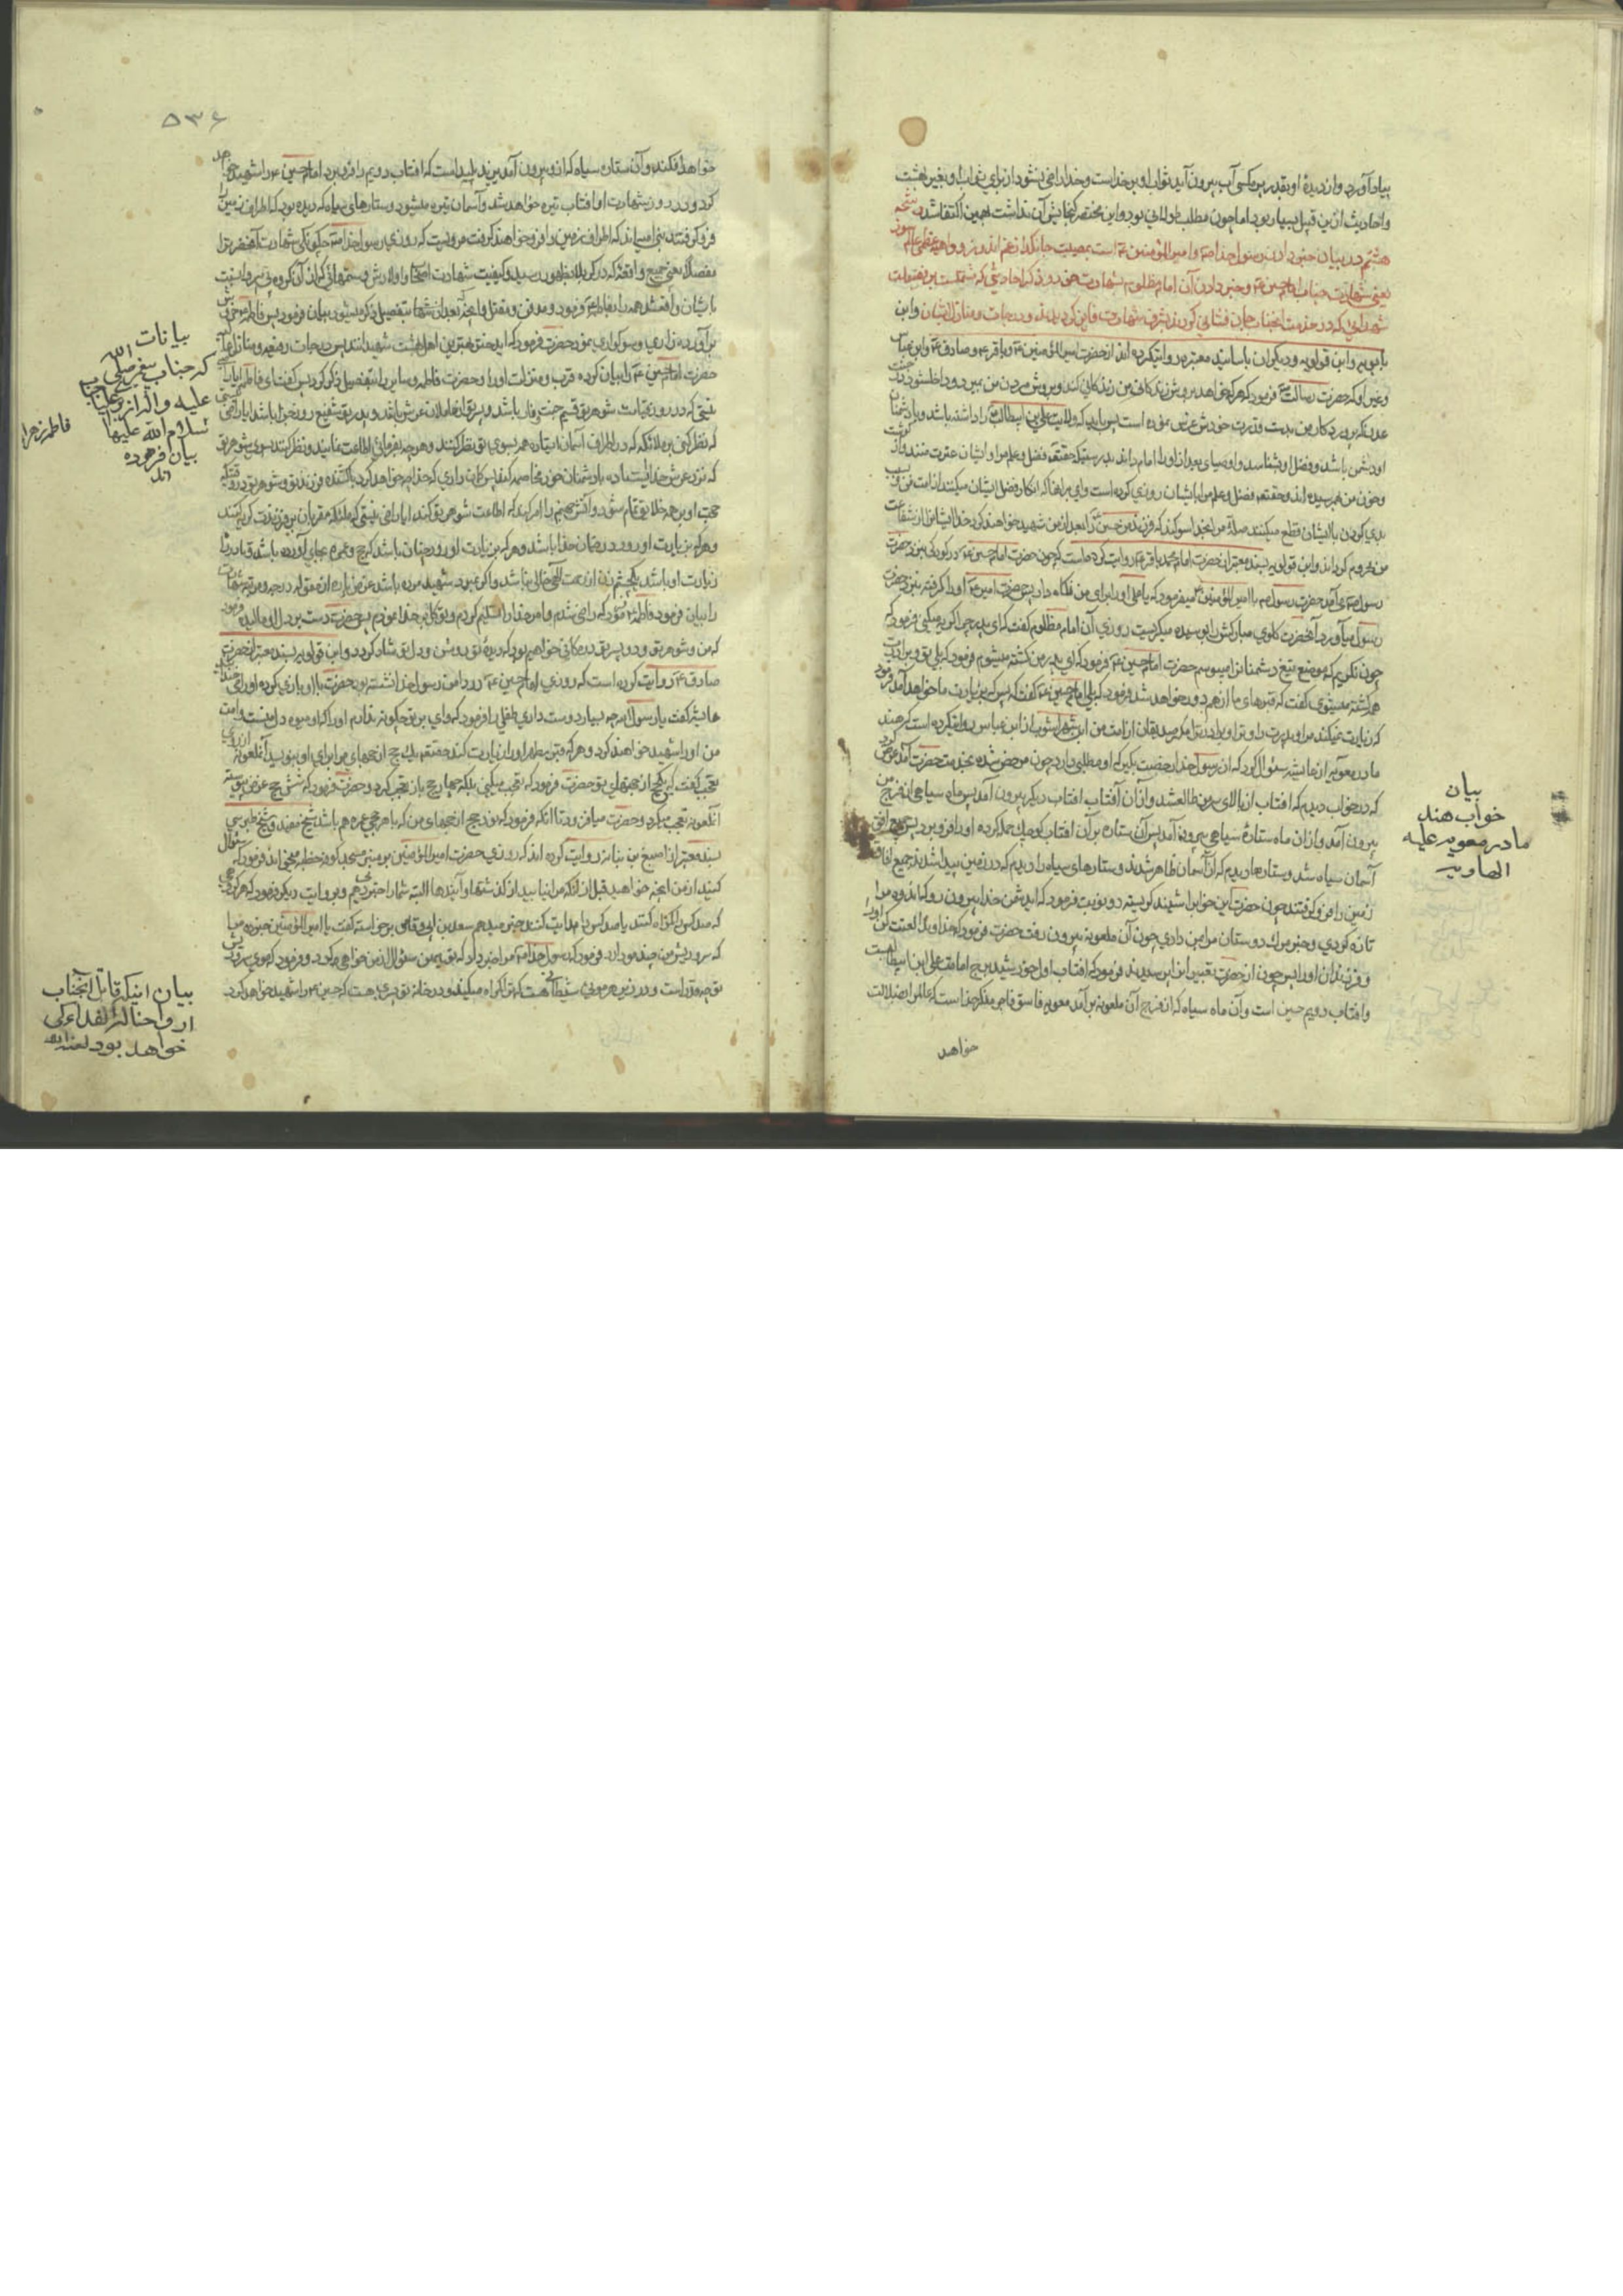 بیاد آورد و از دیدهٔ او بقدر پر مکسی آب بیرون آید ثواب او بر خداست و خدا راضی نشود از برای ثواب او بغیر بهشت
و احادیث ازین قبیل بسیار بود اما چون مطلب طولانی بود و این مختصر گنجایش آن نداشت بهمین اکتفا شد
هشتم در بیان خبر دادن رسول خدا ص و امیر المؤمنین ع است بمصیبت جانگداز غم اندوز و واهیه عظمی عالم سوز
یعنی شهادت جناب امام حسین ع و خبر دادن آن امام مظلوم بشهادت خود و ذکر احادیثی که مشتملست بر فضیلت
شهدائی که در خدمت آنجناب جان فشانی کردند و بشرف شهادت فایز گردیدند و درجات و منازل ایشان و ابن
بابویه و ابن قولویه و دیگران باسانید معتبره روایتکرده اند از حضرت امیر المؤمنین ع و باقر ع و صادق ع و ابن عباس
و غیر او که حضرت رسالت ص فرمود که هر که خواهد بروش زندگانی من زندگانی کند و بروش مردن من بمیرد و داخل شود در جنت
عدنکه پروردکار من بدست قدرت خودش غرس نموده است پس باید که ولایت علی بن ابیطالب را داشته باشد و با دشمنان
او دشمن باشد و فضل او بشناسد و اوصیای بعد از او را امام داند بدرستیکه حقتعالی فضل و علم مرا و ایشان عترت منند و از گوشت
و خون من بهم رسیده اند و حقتعالی فضل و علم مرا بایشان روزی کرده است وای بر آنها که انکار فضل ایشان میکنند از امت من و بسبب
بدی کردن با ایشان قطع میکنند صلهٔ مرا بخدا سوکند که فرزند من حسین را بعد از من شهید خواهند کرد خدا ایشانرا از شفاعت
من محروم کرداند و ابن قولویه بسند معتبر از حضرت امام محمد باقر ع روایت کرده است که چون حضرت امام حسین ع در کودکی بنزد حضرت
رسول ص می آمد حضرت رسول ص با امیر المؤمنین ع میفرمود که یا علی او را برای من نگاه دار پس حضرت امیر ع او را گرفته بنزد حضرت
رسول میآورد و آنحضرت گلوی مبارکش را بوسیده میگریست روزی آن امام مظلوم گفت که ای پدر چرا گریه میکنی فرمود که
چون نگریم که موضع تیغ دشمنان را میبوسم حضرت امام حسین ع فرمود که ای پدر من کشته میشوم فرمود که بلی تو و برادرت
همه کشته میشوی گفت که قبرهای ما از هم دور خواهد شد فرمود که بلی امام حسین ع گفت که پس که بزیارت ما خواهد آمد فرمود
که زیارت نمیکند مرا و پدرت را و ترا و برادر ترا مگر صدیقان از امت من ابن شهر آشوب از ابن عباس روایتکرده است که هند
مادر معویه از عایشه سئوال کرد که از رسول خدا رخصت بگیر که او مطلبی دارد چون مرخص شده بخدمت حضرت آمد عرض کرد
که در خواب دیدم که افتاب از بالای سر من طالع شد و از آن آفتاب افتاب دیگر بیرون آمد پس ماه سیاهی از فرج من
بیرون آمد و از ان ماه ستارهٔ سیاهی بیرون آمد پس آن ستاره بر آن افتاب کوچک حمله کرده او را فرو برد پس جمیع افق
آسمان سیاه شد و ستاره ها دیدم که از آسمان ظاهر شدند و ستارهای سیاه را دیدم که در زمین پیدا شدند جمیع افاق
زمین را فرو گرفتند چون حضرت این خواب را شنید گریسته دو نوبت فرمود که ای دشمن خدا بیرون رو که اندوه مرا
تازه کردی و خبر مرک دوستان مرا بمن دادی چون آن ملعونه بیرون رفت حضرت فرمود که خداوندا لعنت کن او را
و فرزندان او را پس چون از حضرت تعبیر این خواب پرسیدند فرمود که افتاب اول خورشید برج امامت علی ابن ابیطالبست
و افتاب دویم حسین است و آن ماه سیاه که از فرج آن ملعونه بر آمد معویه فاسق فاجر منکر خداست که عالم را ضلالت
خواهد
بیان
خواب هند
مادر معویه علیه
الهاویه
۵۳۶
خواهد افکند و آن ستاره سیاه که از او بیرون آمد یزید پلید است که افتاب دویم را فرو برد امام حسین ع را شهید خواهد
کرد و در روز شهادت او افتاب تیره خواهد شد و آسمان تیره میشود و ستارهای سیاه که دیده بود که اطراف زمین را
فرو گرفتند بنی امیه اند که اطراف زمین را فرو خواهند گرفت مرویست که روزی رسول خدا ص چکونگی شهادت آنحضرترا
مفصلا یعنی جمیع واقعهٔ که در کربلا بظهور رسید و کیفیت شهادت اصحاب و اولادش و ستمهائی که از آن گروه بی مروت
بایشان واقع شد همه را بفاطمه ع فرمود و مدفن و مقتل و آنچه بعد از شهادت بتفصیل ذکر میشود بیان فرمود پس فاطمه ع خروش
برآورده زاری و سوکواری نمود حضرت فرمود که ای دختر بهترین اهل بهشت شهیدانند پس درجات رفیعه و منازل عالیه
حضرت امام حسین ع را بیان کرده قرب و منزلت او را و حضرت فاطمه و سایرین را بتفصیل ذکر کرد پس گفت ای فاطمه آیا راضی
نیستی که در روز قیامت شوهر تو قسیم جنت و نار باشد و پسر تو از حاملان عرش باشد و پدر تو شفیع روز جزا باشد ایا راضی نیستی
که نظر کنی بر ملائکه که در اطراف آسمان ایستاده همه بسوی تو نظر کنند و هر چه بفرمائی اطاعت نمایند و نظر کنند بسوی شوهر تو
که نزد عرش خدا ایستاده با دشمنان خود مخاصمه کند پس گمان داری که خدا چه خواهد کرد با کشنده فرزند تو و شوهر تو در وقتیکه
حجت او بر همه خلایق تمام شود و آتش جهنم را امر کرده اند که اطاعت شوهر تو کند ایا راضی نیستی که ملئکه مقربان بر فرزندت گریه کنند
و هر که بزیارت او رود در ضمان خدا باشد و هر که بزیارت او رود چنان باشد که حج و عمره بجای آورده باشد
زیارت او باشد یکچشم زدن از رحمت الهی خالی نباشد و اگر بمیرد شهید مرده باشد
را بیان فرمود فاطمه ع فرمود که راضی شدم و امر خدا را تسلیم کردم و توکل بر خدا نمودم پس حضرت دست بر دل او مالیده فرمود
که من و شوهر تو و دو پسر تو در مکانی خواهیم بود که دیدهٔ تو روشن و دل تو شاد گردد و ابن قولویه بسند معتبر از حضرت
صادق ع روایت کرده است که روزی امام حسین ع در دامن رسول خدا نشسته بود حضرت با او بازی کرده او را میخندانید
عایشه گفت یا رسول الله چه بسیار دوست داری طفل را فرمود که وای بر تو چگونه ندارم او را که او میوه دل منست و امت
من او را شهید خواهند کرد و هر که قبر مطهر او را زیارت کند حقتعالی یک حج از حجهای مرا برای او بنویسد آنملعونه از روی
تعجب گفت که یکحج از حجهای تو حضرت فرمود که تعجب میکنی بلکه چهار حج باز تعجب کرد و حضرت فرمود که شش حج عرض پیوسته
آنملعونه تعجب میکرد و حضرت میافزود تا آنکه فرمود که نود حج از حجهای من که با هر حجی عمره هم باشد شیخ مفید و شیخ طبرسی
بسند معتبر از اصبغ بن نباته روایت کرده اند که روزی حضرت امیر المؤمنین بر منبر مسجد کوفه خطبه میخواند فرمود که سئوال
کنید از من آنچه خواهید قبل از آنکه مرا نیابید از گذشتها و آیندها البته شمارا خبر میدهم و بروایت دیگر فرمود که هر گروهی
که صد کس را گمراه کنند یا صد کس را هدایت کنند خبر میدهم سعد بن ابی وقاص برخاسته گفت یا امیر المؤمنین خبر ده مرا
که سر و ریش من چند مو دارد فرمود که رسول خدا ص مرا خبر داد که تو چنین سئوال از من خواهی کرد و فرمود که
تو چقدر است و در زیر هر موئی شیطانی هست که ترا گمراه میکند و در خانه تو پسری هست که حسین ع را شهید خواهد کرد
بیانات
که جناب پیغمبر صلی الله
علیه و اله از برای جناب
فاطمه زهرا
سلام الله علیها
بیان فرموده
اند
بیان اینکه قاتل آنجناب
ارواحنا له الفداء کی
خواهد بود لعنه الله